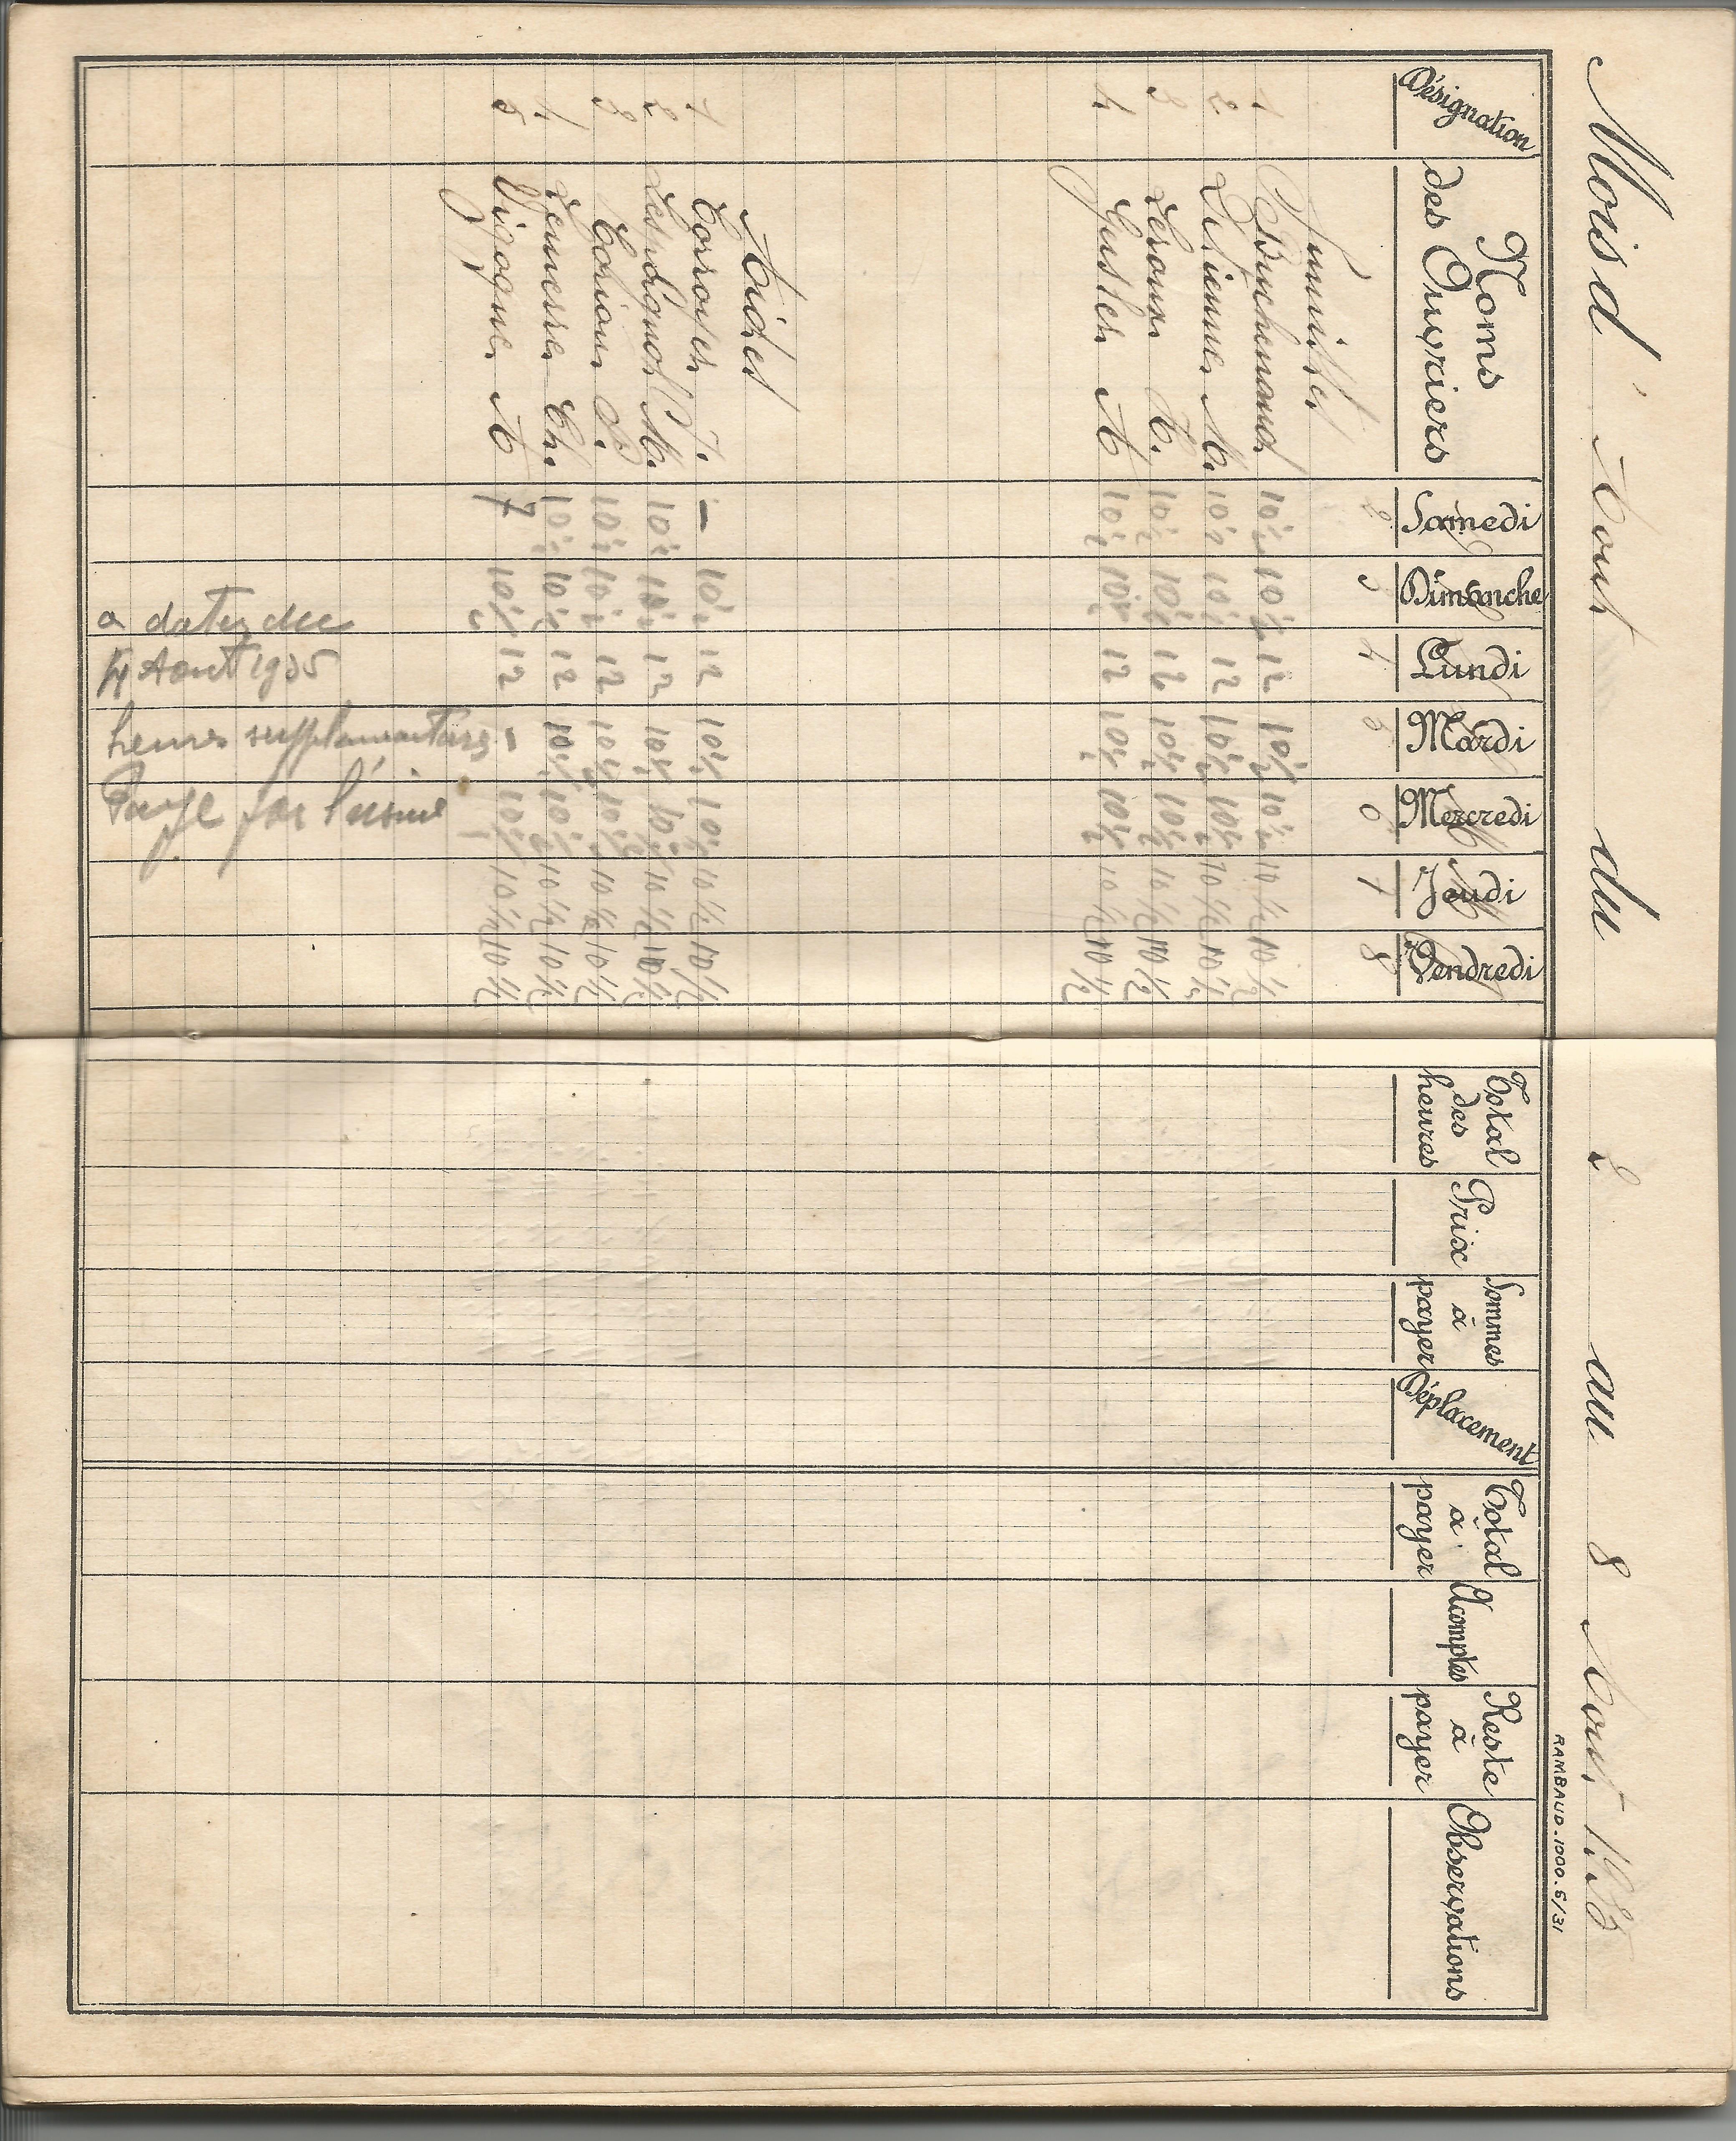 Mois d'Aout du 2 au 8 Aout 1935
RAMBAUD.1000.5/31
Désignation Noms des Ouvriers Samedi Dimanche Lundi Mardi Mercredi Jeudi Vendredi Total des heures Prix Sommes à payer Déplacement Total à payer Acomptes Reste à payer Observations
2 3 4 5 6 7 8
Fumistes
1 10½ 10½ 12 10½ 10½ 10½ 10½
2 Etienne M. 10½ 10½ 12 10½ 10½ 10½ 10½
3 Leroux 10½ 10½ 12 10½ 10½ 10½ 10½
4 A 10½ 10½ 12 10½ 10½ 10½ 10½
Aides
1 J. - 10½ 12 10½ 10½ 10½ 10½
2 M. 10½ 10½ 12 10½ 10½ 10½ 10½
3 10½ 10½ 12 10½ 10½ 10½ 10½
4 Ch. 10½ 10½ 12 10½ 10½ 10½ 10½
5 Vigogne A 7 10½ 12 10½ 10½ 10½
a dater du
4 Aout 1935
heures supplementaires
Payé par l'usine